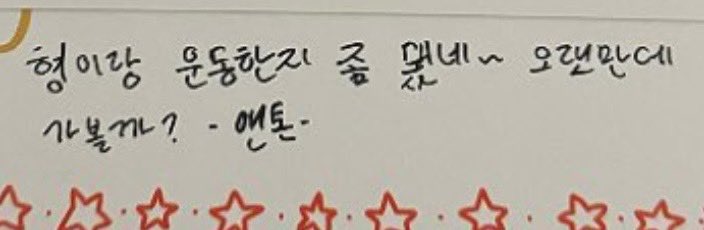 형이랑 운동한지 좀 됐네~ 오랜만에
가볼까? - 앤톤-